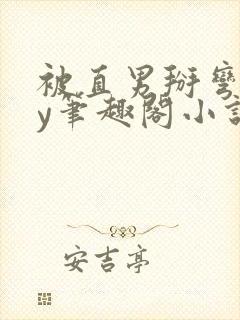 被直男掰弯
y笔趣阁小说
安吉亭